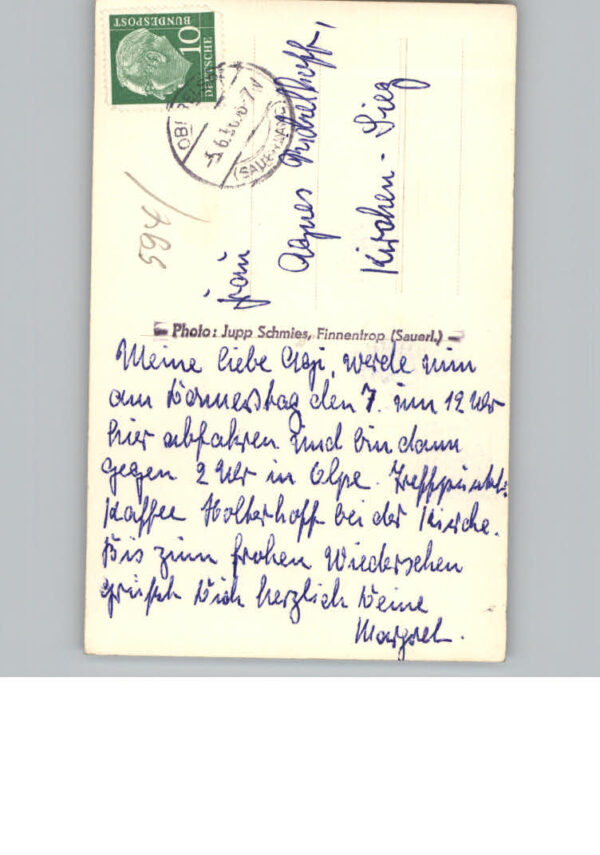 10
DEUTSCHE
BUNDESPOST
5.6.56
(SAUERLAND)
594/
Frau
Agnes
Kirchen-Sieg
Photo: Jupp Schmies, Finnentrop (Sauerl.)
Meine liebe Agi, werde nun
am Donnerstag den 7. um 12 Uhr
hier abfahren und bin dann
gegen 2 Uhr in Olpe. Treffpunkt:
Kaffee Holterhoff bei der Kirche.
Bis zum frohen Wiedersehen
grüßt Dich herzlich Deine
Margret.